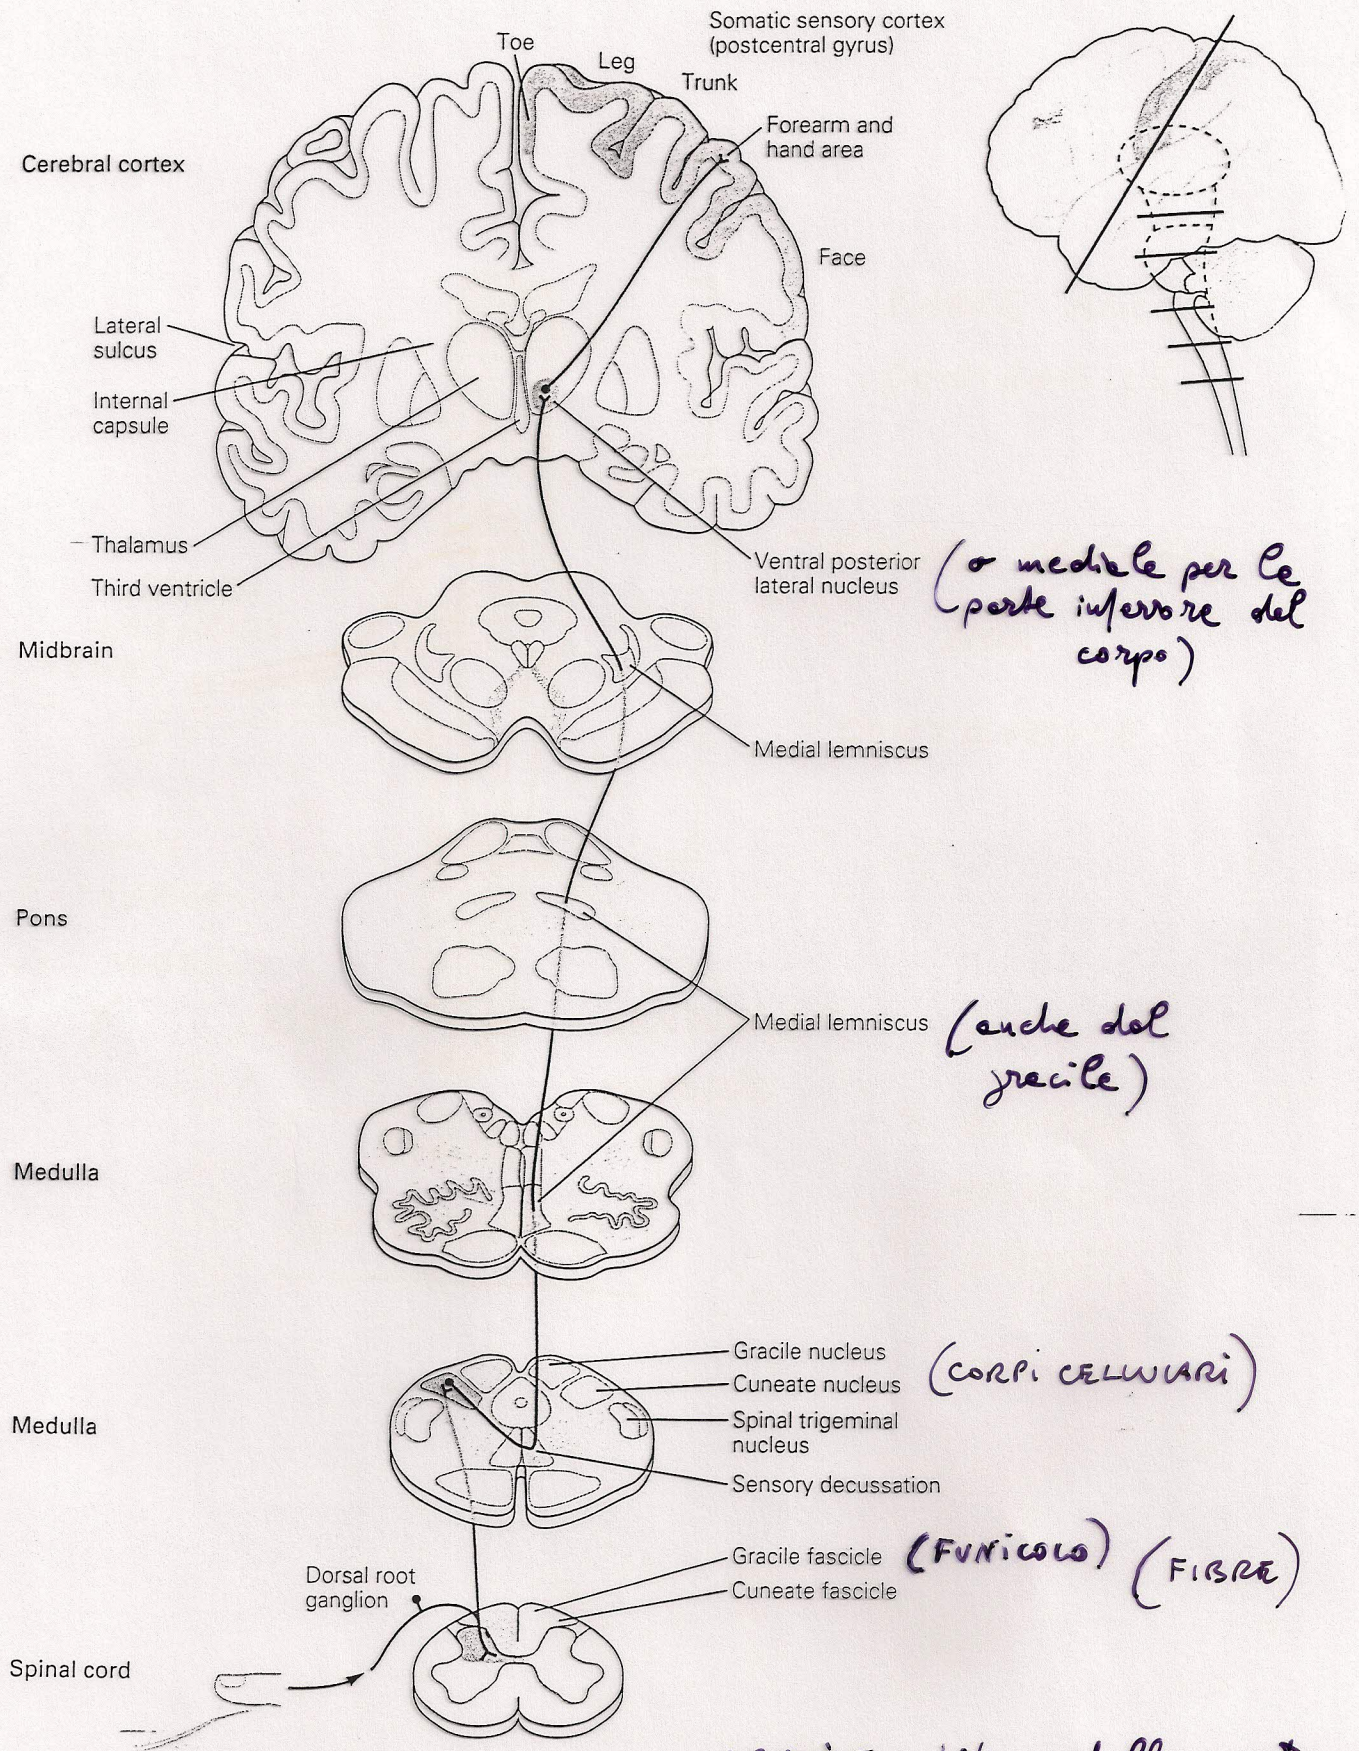 Somatic sensory cortex
(postcentral gyrus)
Toe
Leg
Trunk
Forearm and
hand area
Cerebral cortex
Face
Lateral
sulcus
Internal
capsule
Thalamus
Third ventricle
Ventral posterior
lateral nucleus
(o mediale per la
parte inferiore del
corpo)
Midbrain
Medial lemniscus
Pons
Medial lemniscus
(anche dal
gracile)
Medulla
Gracile nucleus
Cuneate nucleus
(CORPI CELLULARI)
Spinal trigeminal
nucleus
Medulla
Sensory decussation
Gracile fascicle (FUNICOLO) (FIBRE)
Cuneate fascicle
Dorsal root
ganglion
Spinal cord